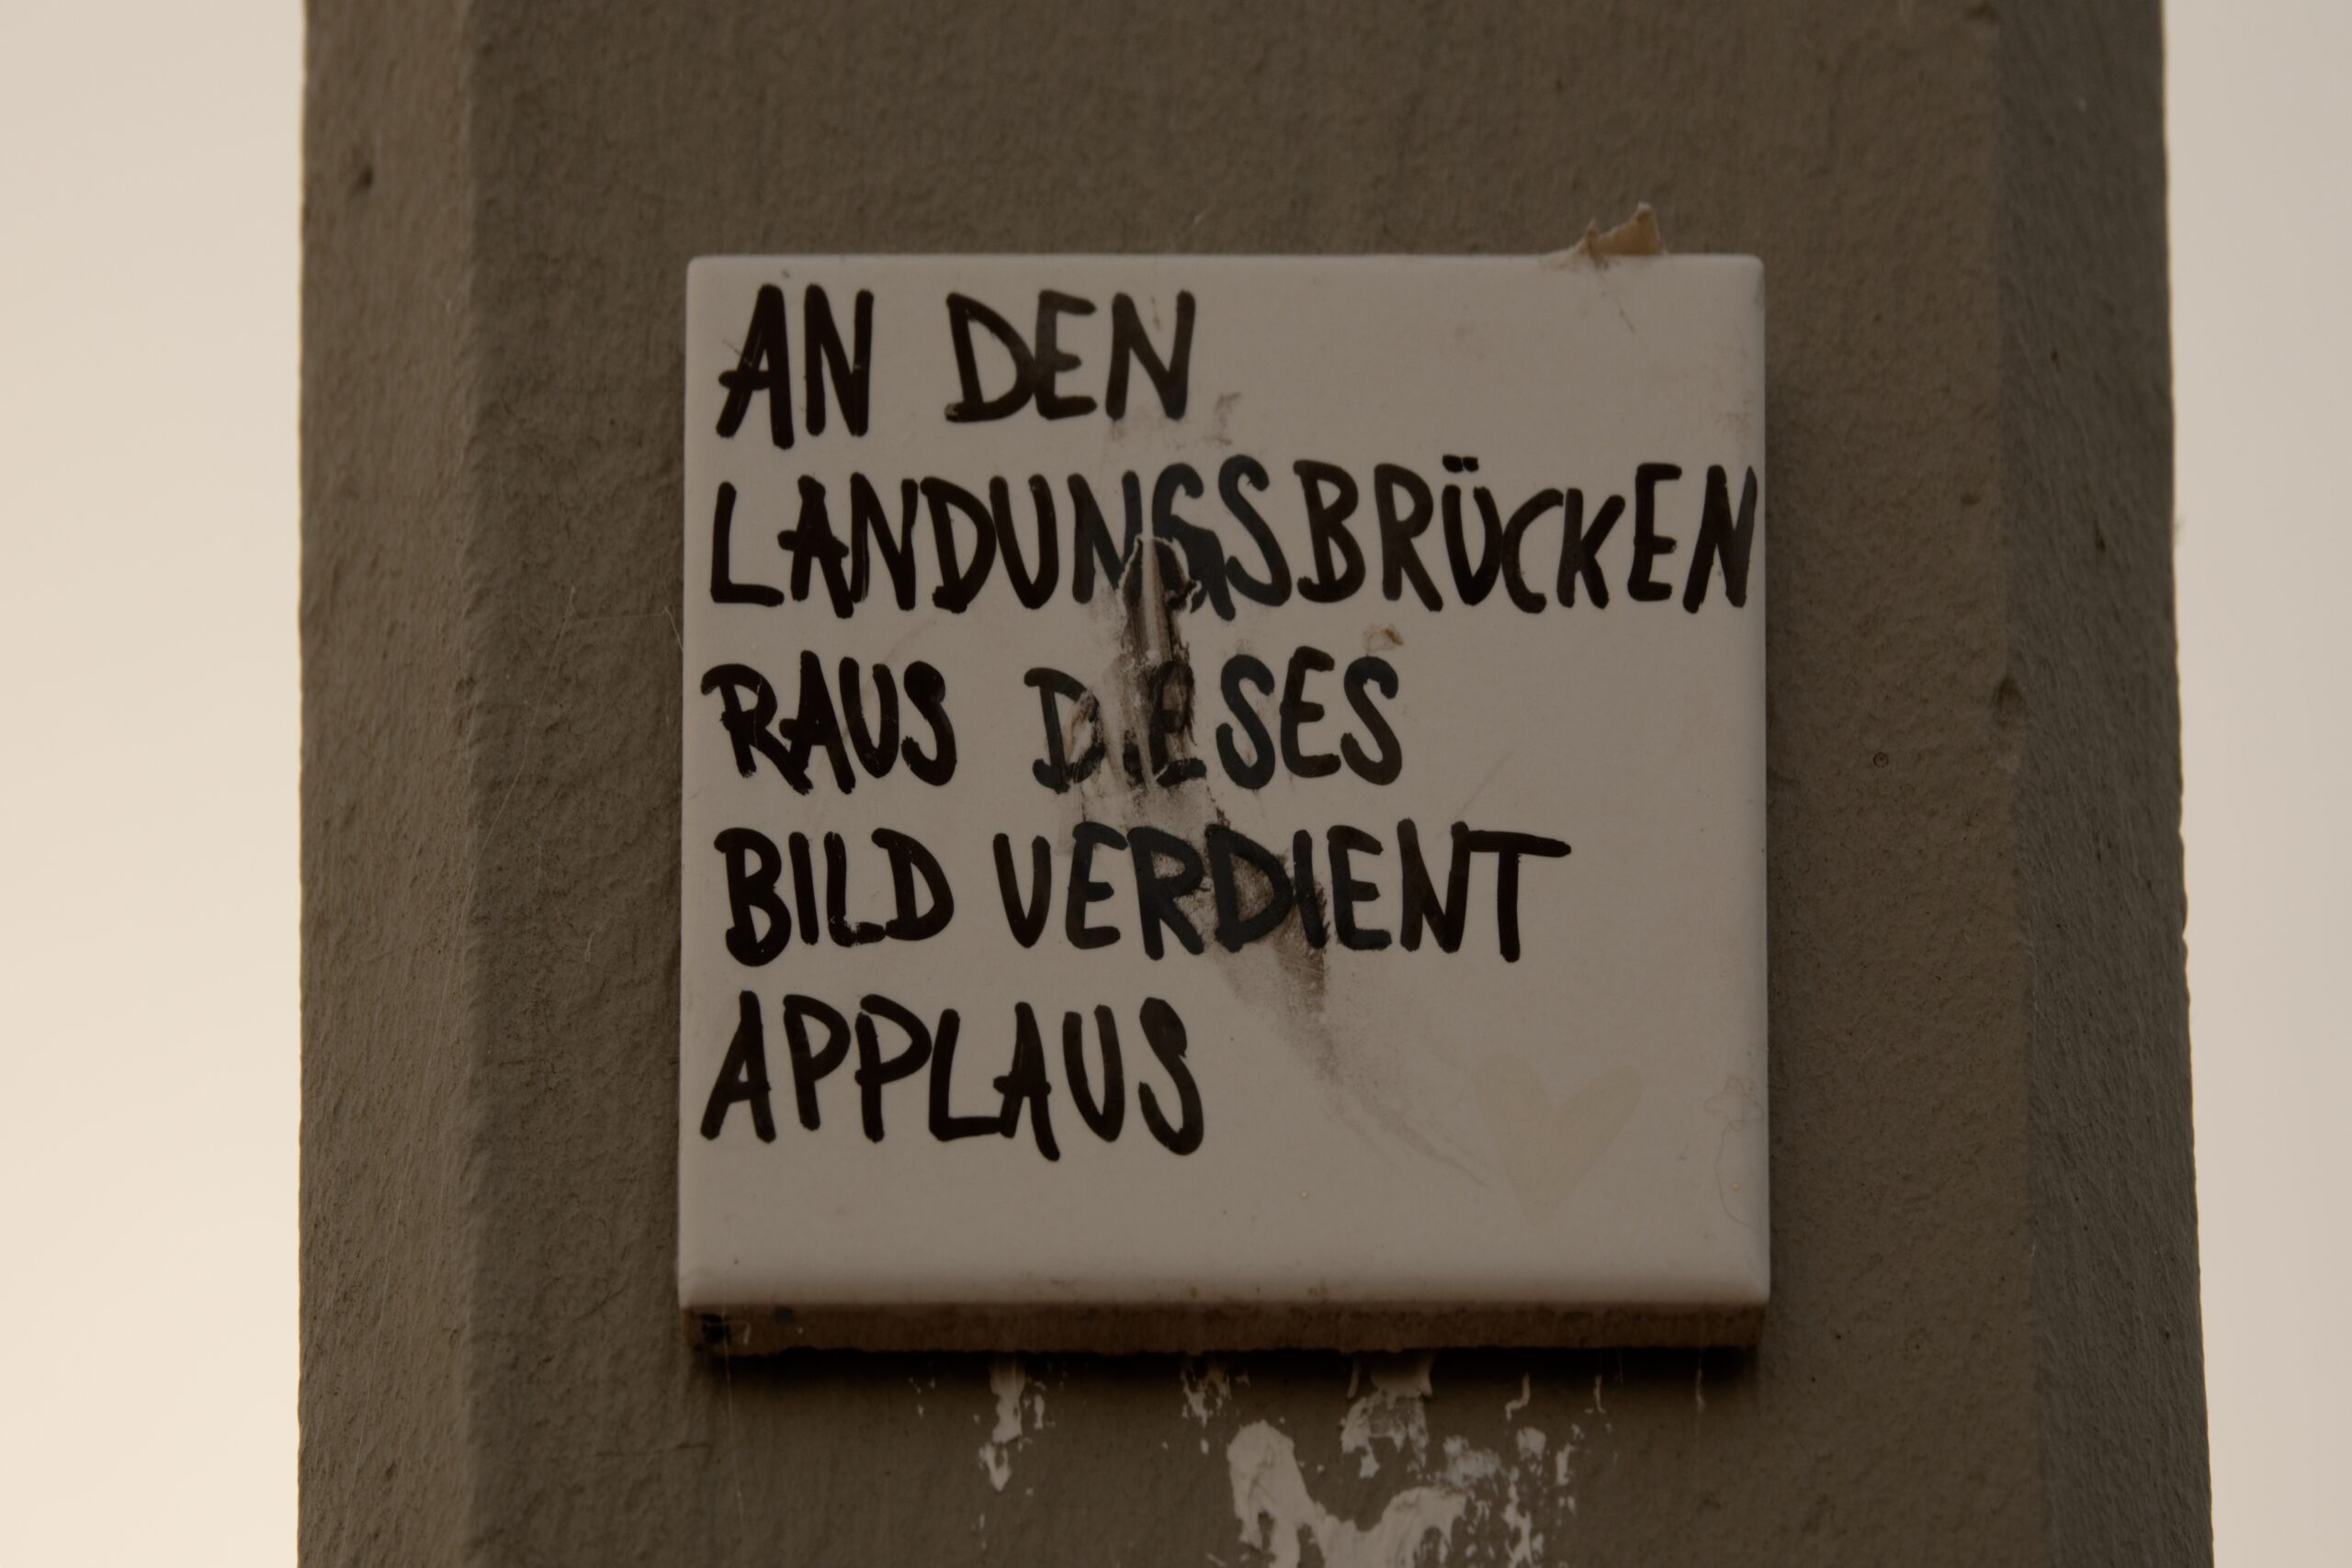 AN DEN
LANDUNGSBRÜCKEN
RAUS DIESES
BILD VERDIENT
APPLAUS